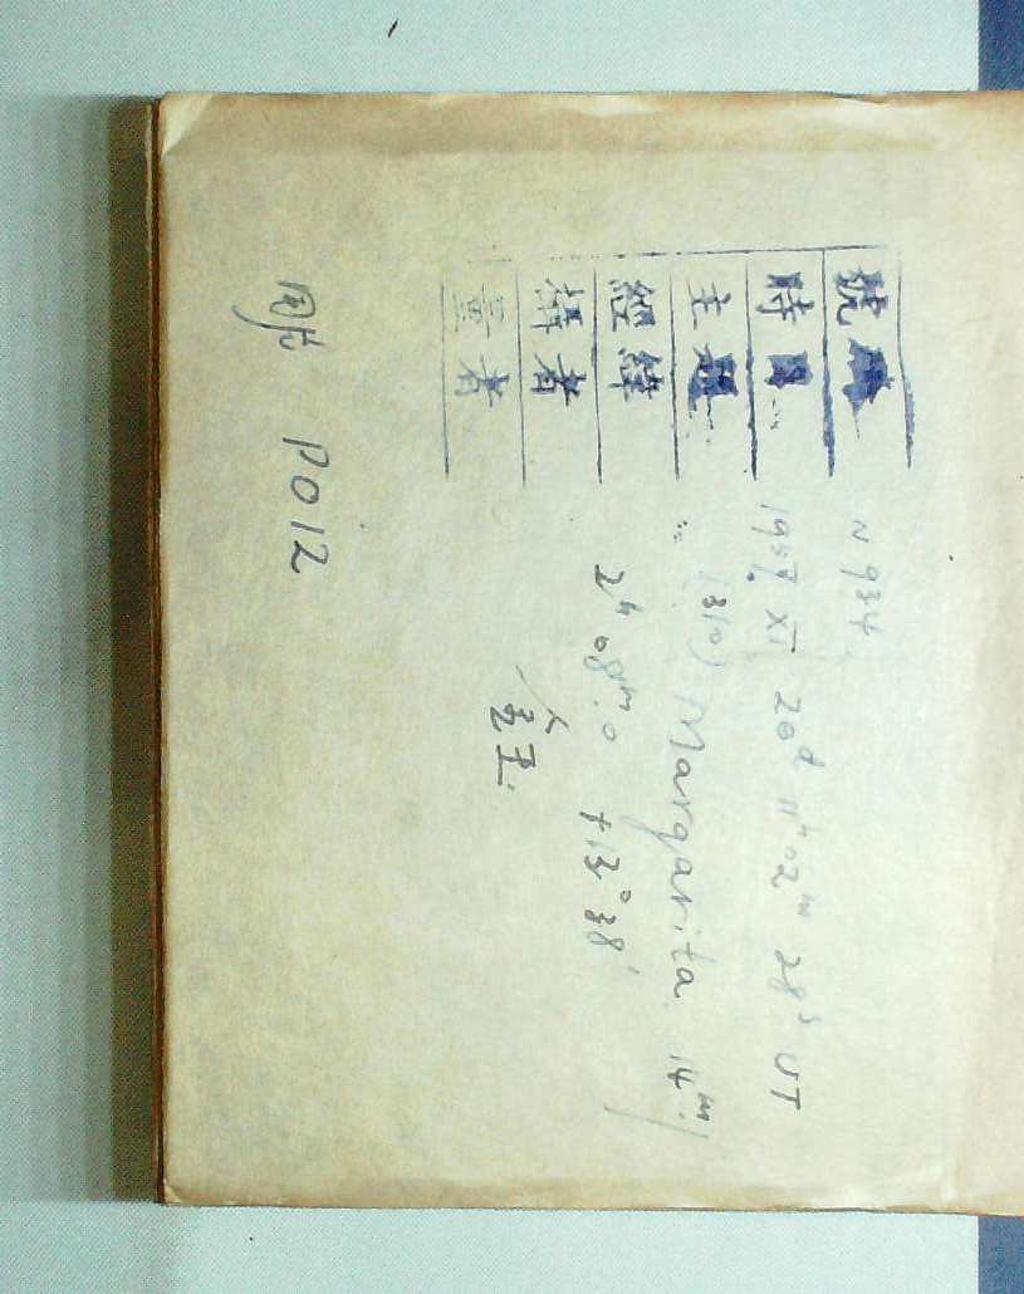 號 N 934
時 1957 XI 20ᵈ 11ʰ 02ᵐ 28ˢ UT
主題 (310) Margarita 14ᵐ.1
經緯 2ʰ 08ᵐ.0 +13°38'
攝者
量者
P012